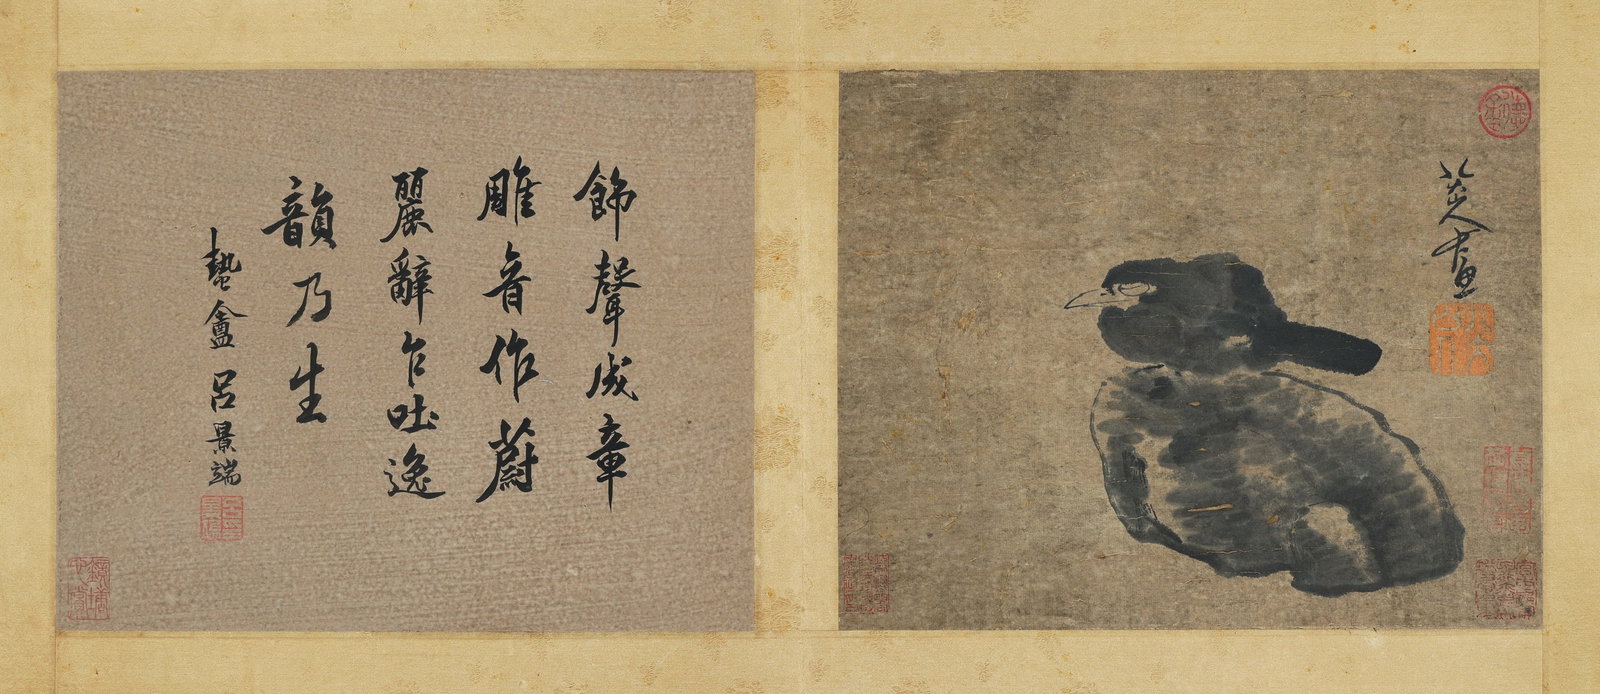 八大山人畫
飾聲成章
雕音作蔚
麗辭乍吐逸
韻乃生
蟄盦呂景端